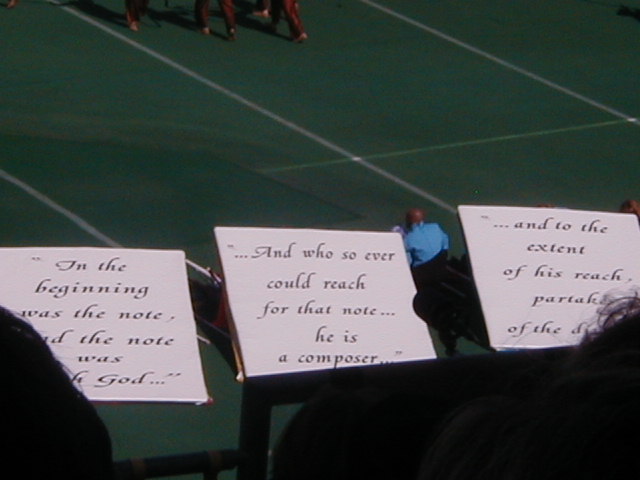 "In the
beginning
was the note,
the note
was
God..."
"...And who so ever
could reach
for that note...
he is
a composer..."
"...and to the
extent
of his reach,
of the